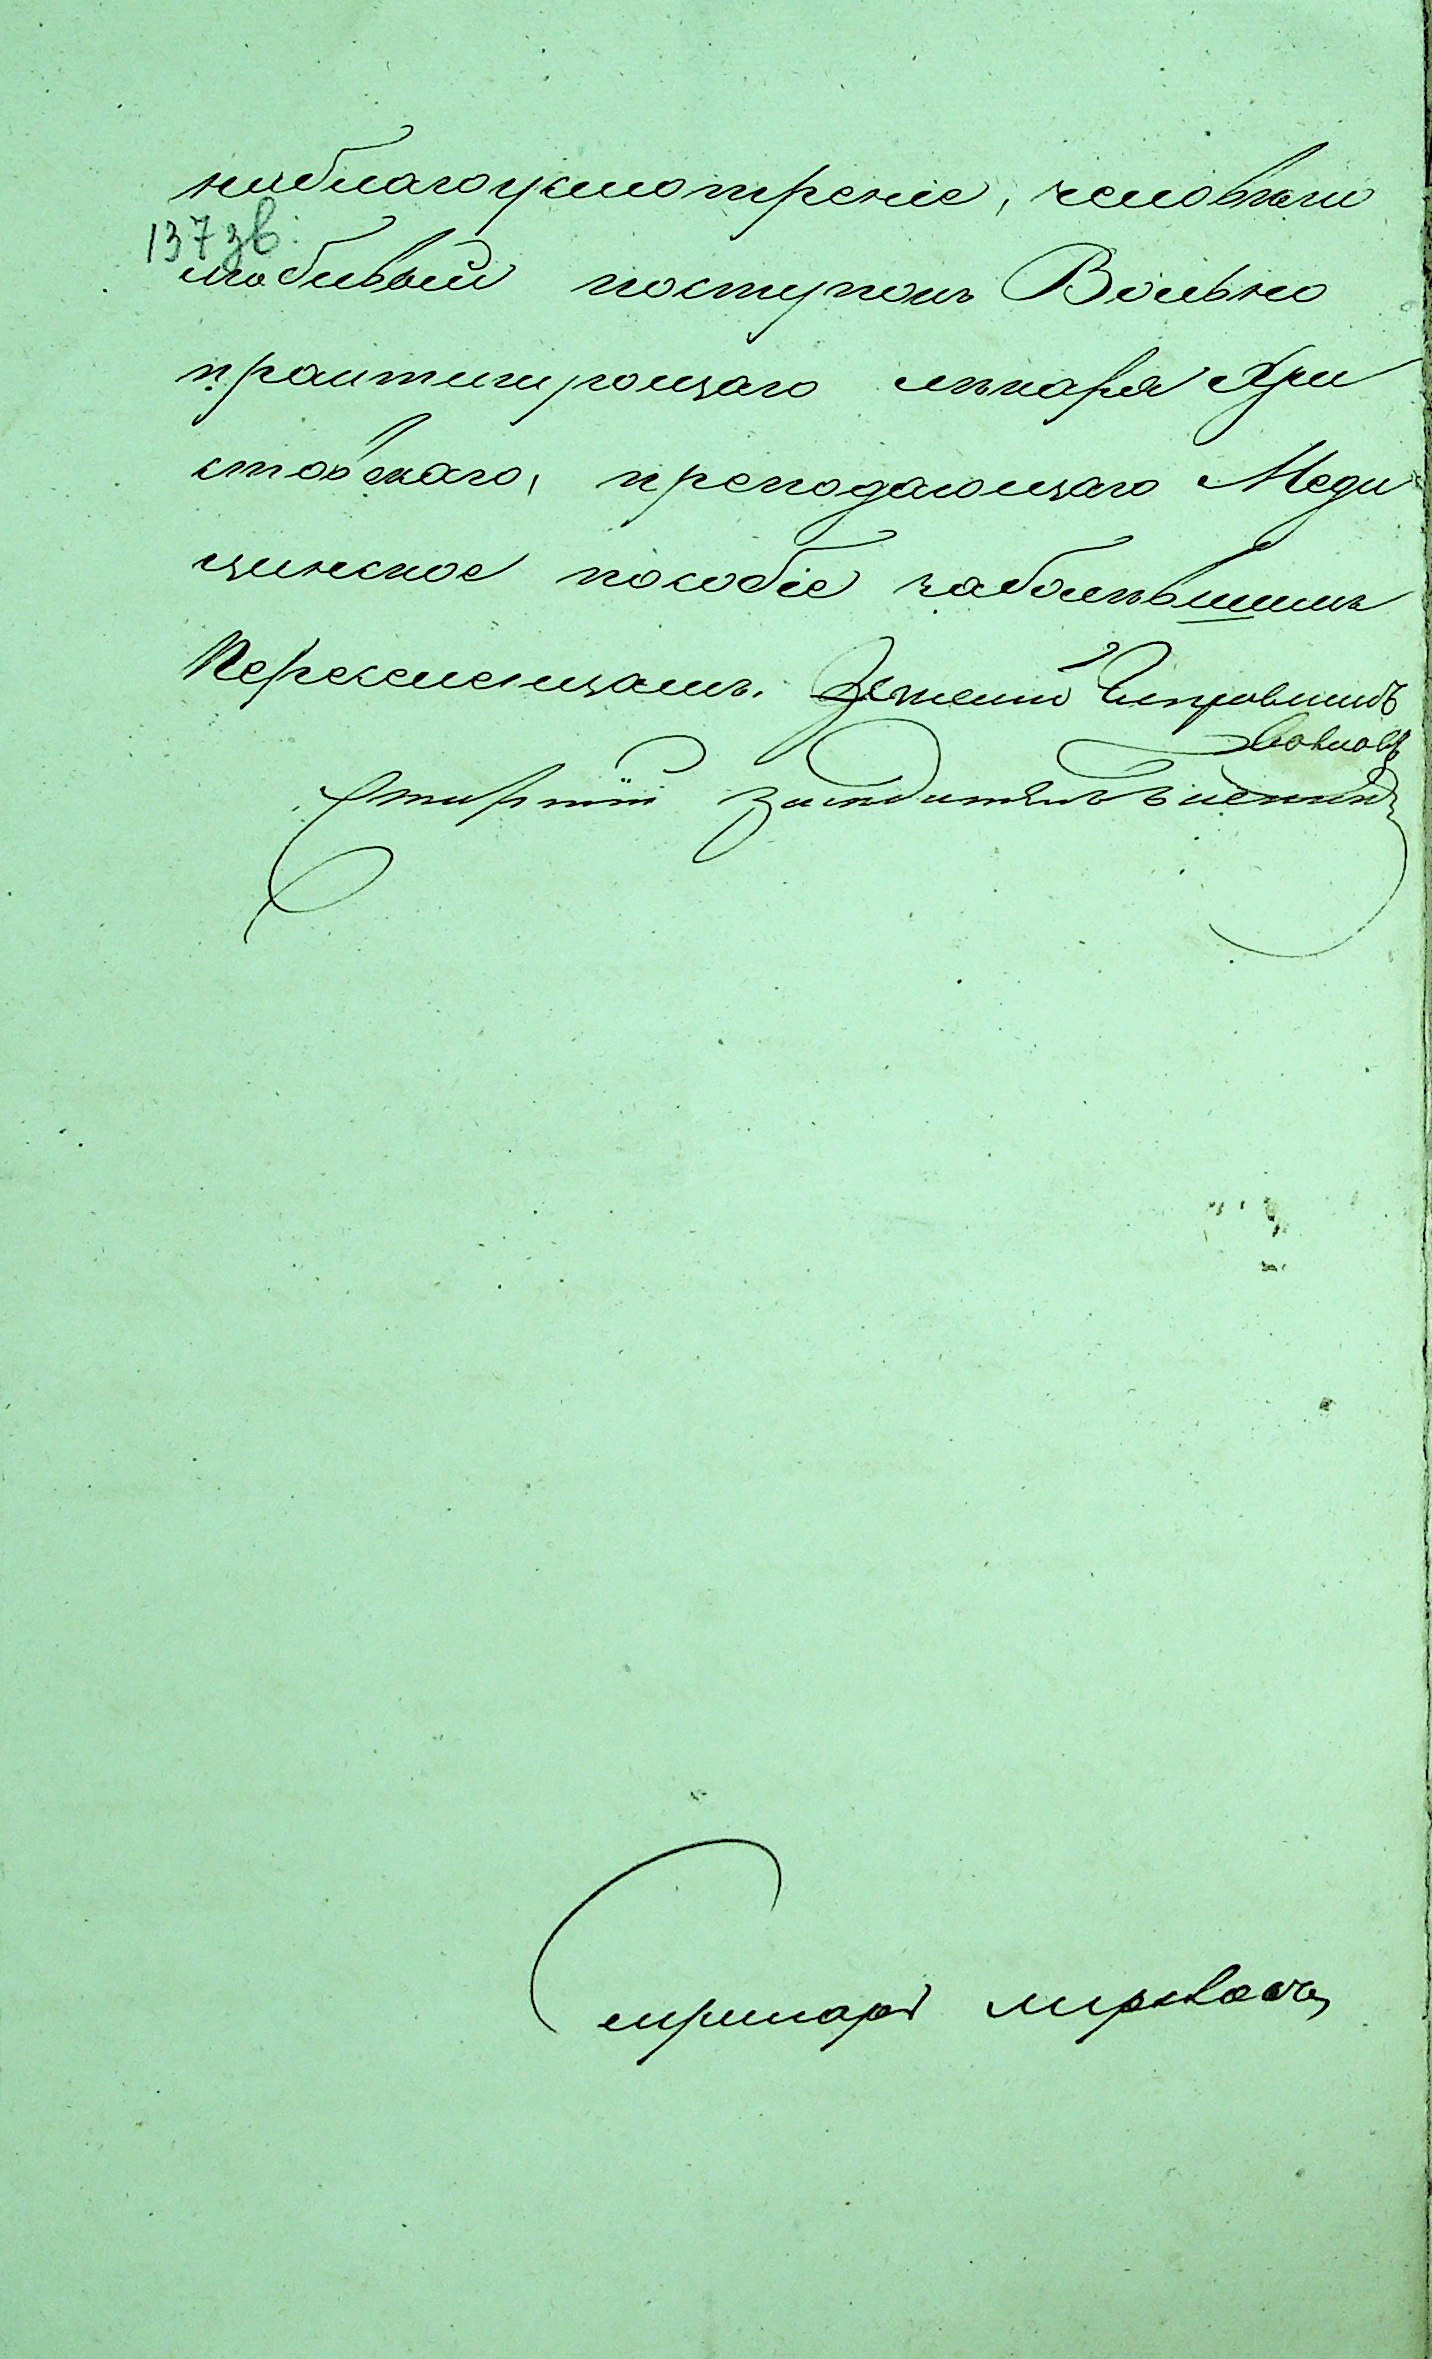 наблагоусмотреніе, человѣко
137 зв.
любивый поступокъ Вольно
практикующаго лѣкаря Хри
стовскаго, преподающаго Меди
цинское пособіе заболѣвшимъ
Переселенцамъ. Земскій Исправникъ
Старшій Засѣдатель
Секретарь